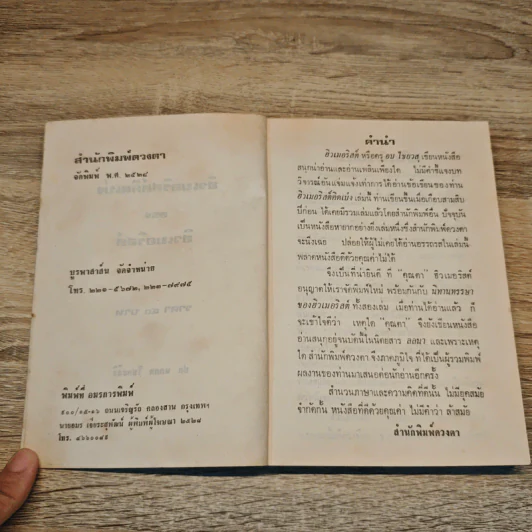 สำนักพิมพ์ดวงตา
จัดพิมพ์ พ.ศ. ๒๕๒๘
บูรพาสาส์น จัดจำหน่าย
โทร. ๒๒๑-๕๖๗๒, ๒๒๓-๗๙๗๕
พิมพ์ที่ อมรการพิมพ์
๕๐๐/๑๕-๑๖ ถนนเจริญรัถ คลองสาน กรุงเทพฯ
นายอมร ผู้พิมพ์ผู้โฆษณา ๒๕๒๘
โทร. ๔๖๖๐๐๔๕
คำนำ
ฮิวเมอริสต์ หรือครู อบ ไชยวสุ เขียนหนังสือ
สนุกน่าอ่านและอ่านเพลินเพียงใด ไม่มีคำชี้แจงบท
วิจารณ์อันแจ่มแจ้งเท่าการได้อ่านข้อเขียนของท่าน
ฮิวเมอริสต์คิดเบ่ง เล่มนี้ ท่านเขียนขึ้นเมื่อเกือบสามสิบ
ปีก่อน ได้เคยมีรวมเล่มแล้วโดยสำนักพิมพ์อื่น ปัจจุบัน
เป็นหนังสือหายากอย่างยิ่งเล่มหนึ่งซึ่งสำนักพิมพ์ดวงตา
จะนิ่งเฉย ปล่อยให้ผู้ไม่เคยได้อ่านอรรถรสในเล่มนี้
พลาดหนังสือดีด้วยคุณค่าไม่ได้
จึงเป็นที่น่ายินดี ที่ "คุณตา" ฮิวเมอริสต์
อนุญาตให้เราจัดพิมพ์ใหม่ พร้อมกันกับ นิทานหรรษา
ของฮิวเมอริสต์ ทั้งสองเล่ม เมื่อท่านได้อ่านแล้ว ก็
จะเข้าใจดีว่า เหตุใด "คุณตา" จึงยังเขียนหนังสือ
อ่านสนุกอยู่จนบัดนี้ในนิตยสาร ลลนา และเพราะเหตุ
ใด สำนักพิมพ์ดวงตา จึงภาคภูมิใจ ที่ได้เป็นผู้รวมพิมพ์
ผลงานของท่านมาเสนอต่อนักอ่านอีกครั้ง
สำนวนภาษาและความคิดที่ดีนั้น ไม่มียุคสมัย
จำกัดกั้น หนังสือที่ดีด้วยคุณค่า ไม่มีคำว่า ล้าสมัย
สำนักพิมพ์ดวงตา